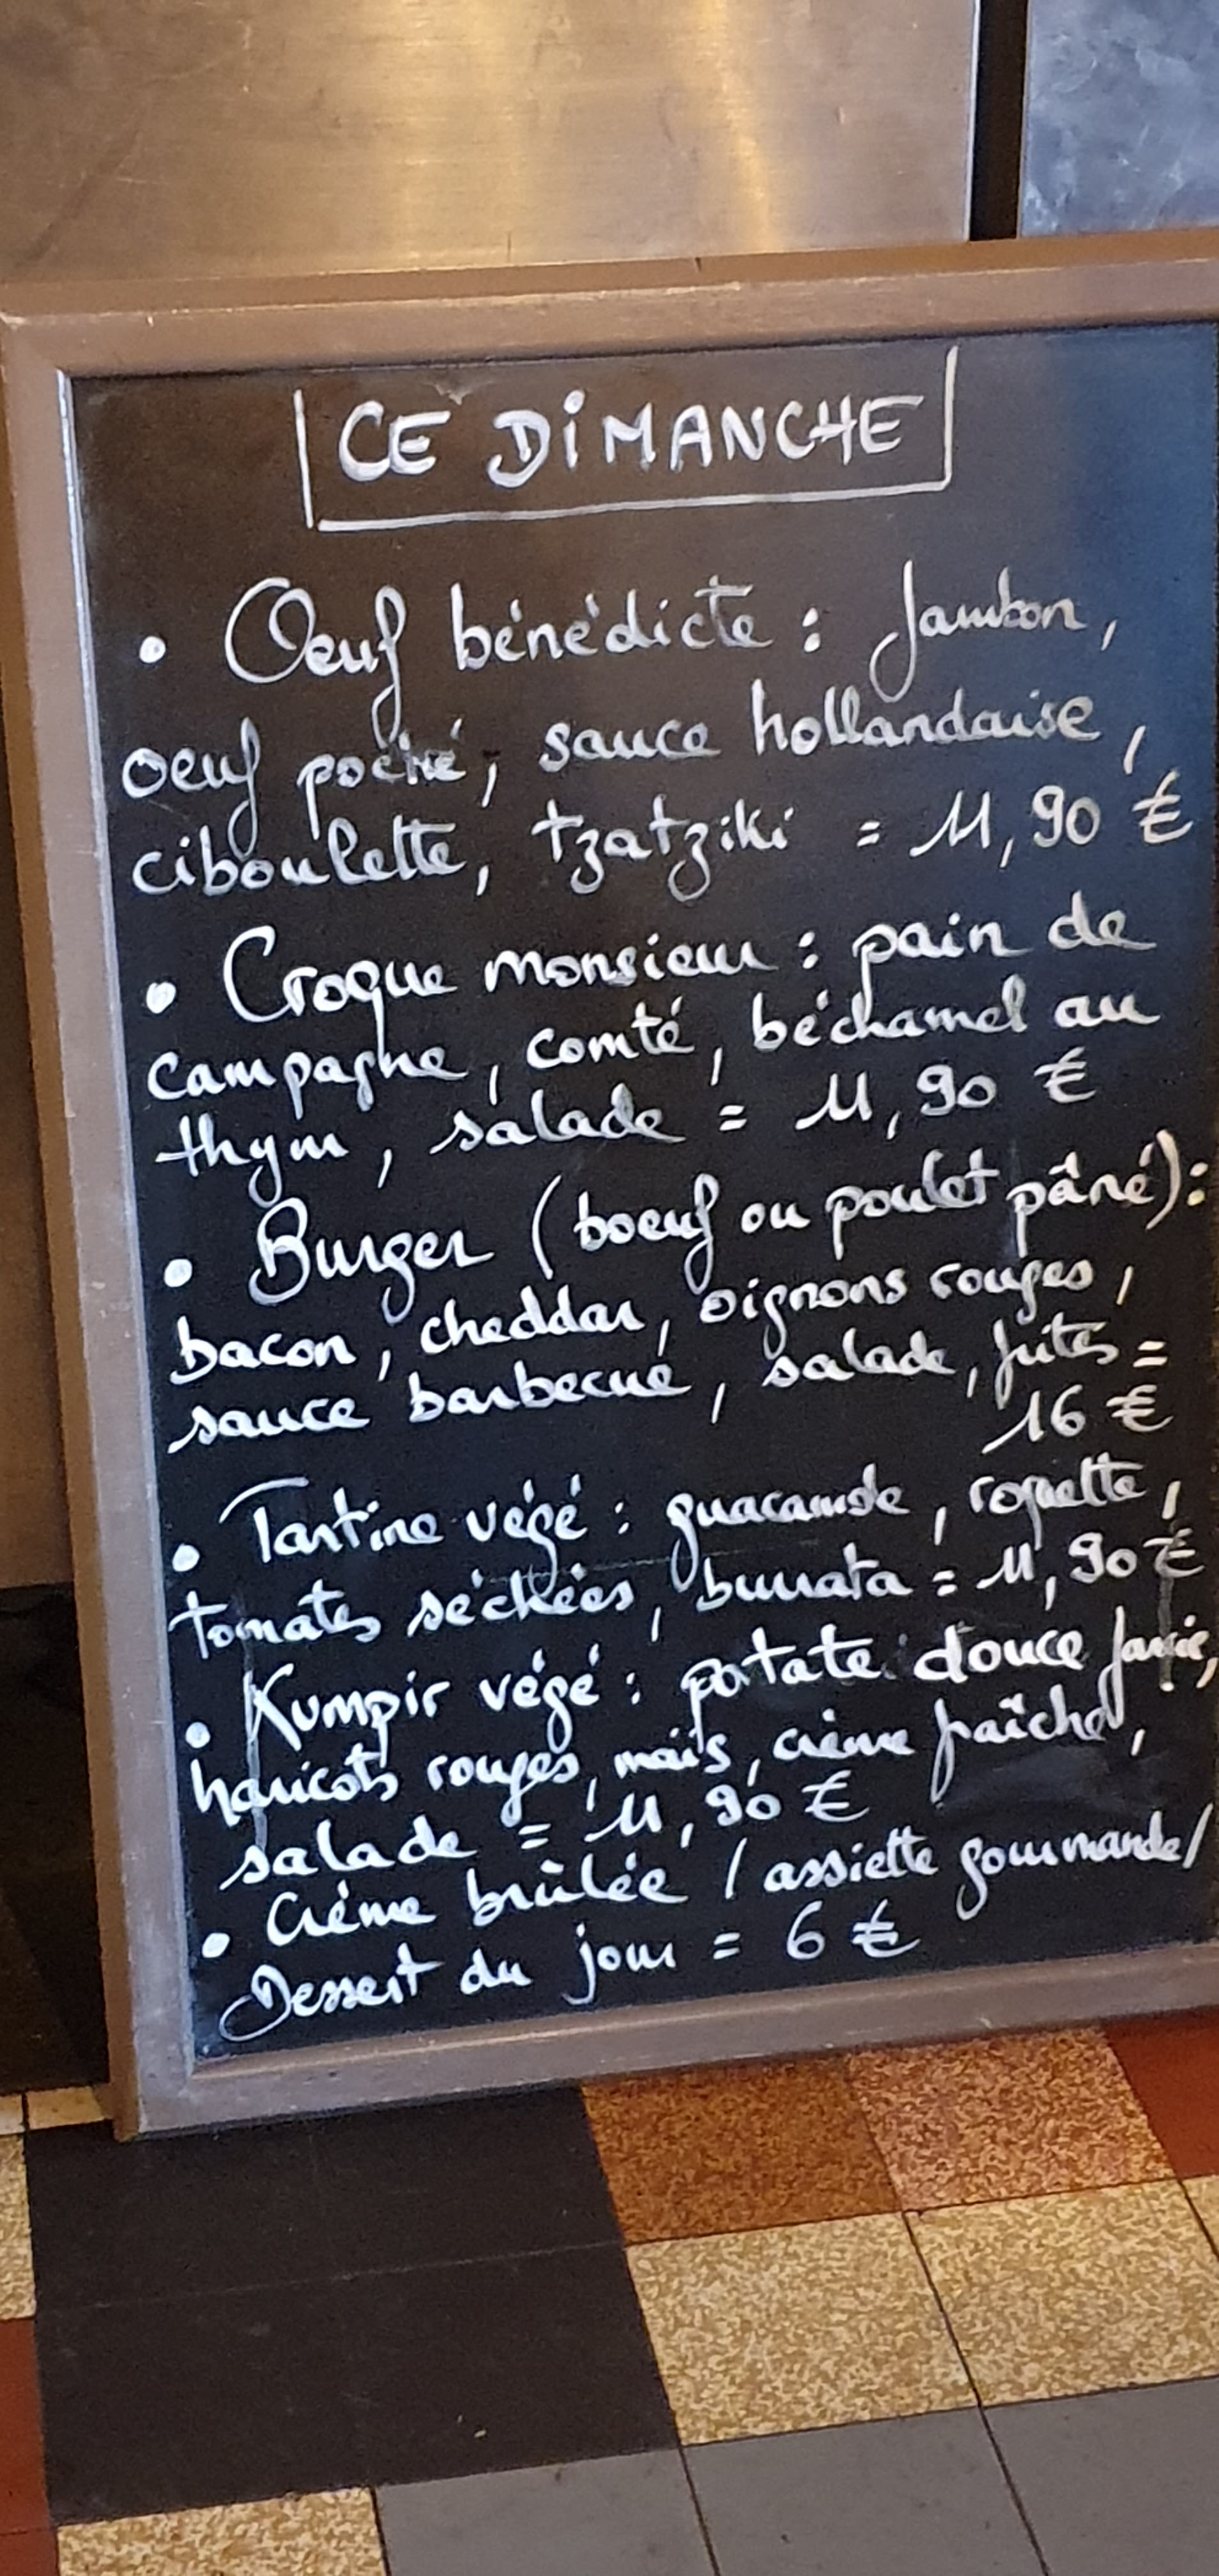 CE DIMANCHE
• Oeuf bénédicte : Jambon,
oeuf poché, sauce hollandaise,
ciboulette, tzatziki = 11,90 €
• Croque monsieur : pain de
campagne, comté, béchamel au
thym, salade = 11,90 €
• Burger (boeuf ou poulet pâné) :
bacon, cheddar, oignons rouges,
sauce barbecue, salade, frites =
16 €
• Tartine végé : guacamole, roquette,
tomates séchées, burrata = 11,90 €
• Kumpir végé : patate douce farcie,
haricots rouges, maïs, crème fraîche,
salade = 11,90 €
• Crème brûlée / assiette gourmande /
Dessert du jour = 6 €